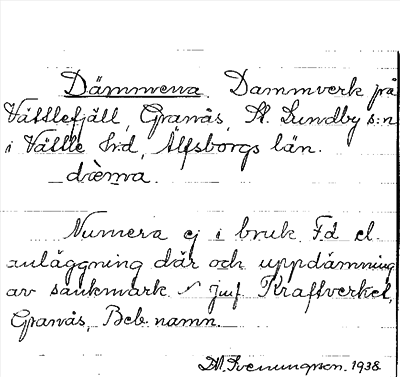 Dämmena. Dammverk på
Vättlefjäll, Granås, St. Lundby s:n
i Vättle hd, Älfsborgs län.
dæ̀m̥na.
Numera ej i bruk. F.d. el.
anläggning där och uppdämning
av sankmark. Jmf. Kraftverket,
Granås, Beb. namn.
1938